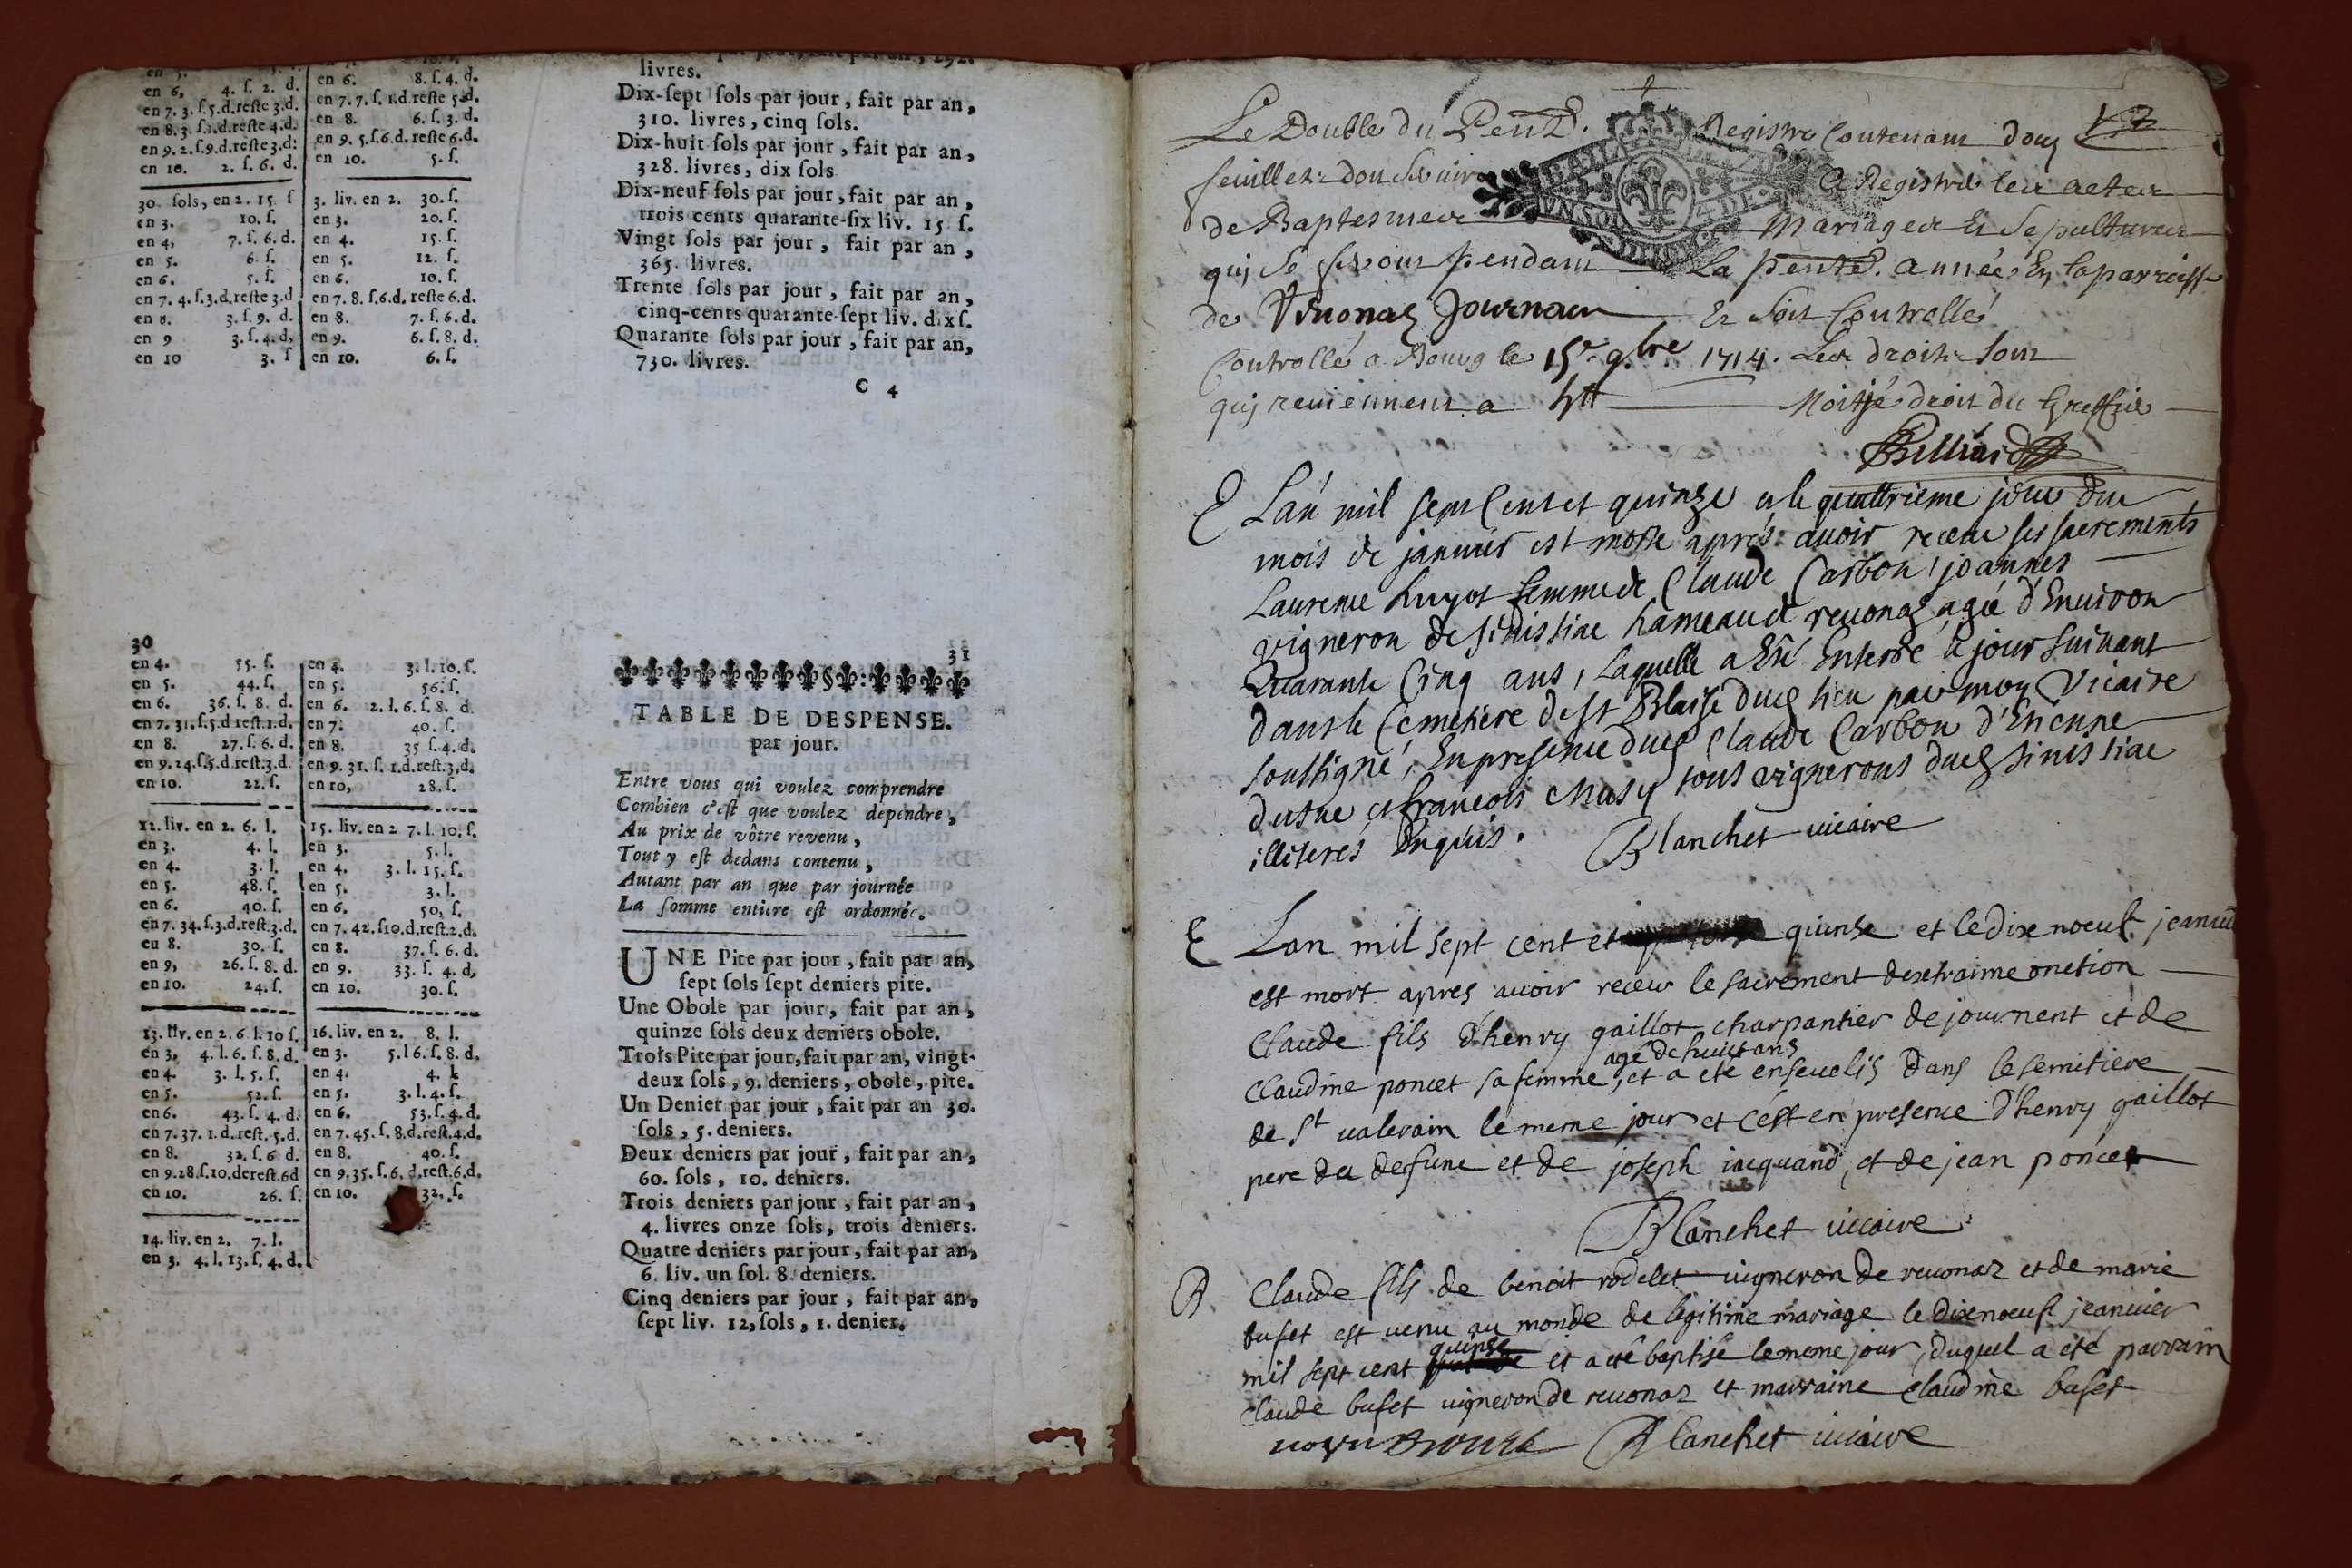 livres.
Dix-sept sols par jour, fait par an,
310. livres, cinq sols.
Dix-huit sols par jour, fait par an,
328. livres, dix sols
Dix-neuf sols par jour, fait par an,
trois cents quarante-six liv. 15. s.
Vingt sols par jour, fait par an,
365. livres.
Trente sols par jour, fait par an,
cinq-cents quarante-sept liv. dix s.
Quarante sols par jour, fait par an,
730. livres.
C 4
en 6, 4. s. 2. d.
en 7. 3. s. 5. d. reste 3. d.
en 8. 3. s. 1. d. reste 4. d.
en 9. 2. s. 9. d. reste 3. d:
en 10. 2. s. 6. d.
30 sols, en 2. 15 s
en 3. 10. s.
en 4, 7. s. 6. d.
en 5. 6 s.
en 6. 5. s.
en 7. 4. s. 3. d. reste 3. d
en 8. 3. s. 9. d.
en 9 3. s. 4. d,
en 10 3. s
en 6. 8. s. 4. d.
en 7. 7. s. 1. d. reste 5. d.
en 8. 6. s. 3. d.
en 9. 5. s. 6. d. reste 6. d.
en 10. 5. s.
3. liv. en 2. 30. s.
en 3. 20. s.
en 4. 15. s.
en 5. 12. s.
en 6. 10. s.
en 7. 8. s. 6. d. reste 6. d.
en 8. 7. s. 6. d.
en 9. 6. s. 8. d.
en 10. 6. s.
30
en 4. 55. s.
en 5. 44. s.
en 6. 36. s. 8. d.
en 7. 31. s. 5. d rest. 1. d.
en 8. 27. s. 6. d.
en 9. 24. s. 5. d. rest. 3. d.
en 10. 22. s.
12. liv. en 2. 6. l.
en 3. 4. l.
en 4. 3. l.
en 5. 48. s.
en 6. 40. s.
en 7. 34. s. 3. d. rest. 3. d.
eu 8. 30. s.
en 9, 26. s. 8. d.
en 10. 24. s.
13. liv. en 2. 6 l. 10 s.
en 3, 4. l. 6. s. 8. d.
en 4. 3. l. 5. s.
en 5. 52. s.
en 6. 43. s. 4. d.
en 7. 37. 1. d. rest. 5. d.
en 8. 32. s. 6 d.
en 9. 28. s. 10. de rest. 6d
en 10. 26. s.
14. liv. en 2. 7. l.
en 3. 4. l. 13. s. 4. d.
en 4. 3. l. 10. s.
en 5. 56. s.
en 6. 2. l. 6. s. 8. d.
en 7. 40. s.
en 8. 35 s. 4. d.
en 9. 31. s. 1. d. rest. 3. d.
en 10, 28. s.
15. liv. en 2 7. l. 10. s.
en 3. 5. l.
en 4. 3. l. 15. s.
en 5. 3. l.
en 6. 50, s.
en 7. 42. s 10. d. rest. 2. d.
en 8. 37. s. 6. d.
en 9. 33. s. 4. d,
en 10. 30. s.
16. liv. en 2. 8. l.
en 3. 5. l 6. s. 8. d.
en 4. 4. l.
en 5. 3. l. 4. s.
en 6. 53. s. 4. d.
en 7. 45. s. 8. d. rest. 4. d.
en 8. 40. s.
en 9. 35. s. 6. d. rest. 6. d.
en 10. 32. s.
31
TABLE DE DESPENSE.
par jour.
Entre vous qui voulez comprendre
Combien c'est que voulez dépendre,
Au prix de vôtre revenu,
Tout y est dedans contenu,
Autant par an que par journée
La somme entiere est ordonnée.
UNE Pite par jour, fait par an,
sept sols sept deniers pite.
Une Obole par jour, fait par an,
quinze sols deux deniers obole.
Trois Pite par jour, fait par an, vingt-
deux sols, 9. deniers, obole, pite.
Un Denier par jour, fait par an 30.
sols, 5. deniers.
Deux deniers par jour, fait par an,
60. sols, 10. deniers.
Trois deniers par jour, fait par an,
4. livres onze sols, trois deniers.
Quatre deniers par jour, fait par an,
6. liv. un sol. 8. deniers.
Cinq deniers par jour, fait par an,
sept liv. 12, sols, 1. denier.
Le Double du Pent. Registre Contenant douz
feuillets dou Registré les actes
de Baptesmes Mariages Et Sepultures
quj Se feront pendant La pente. année En la parroisse
de Revonaz Journan Et Soit Controllé
Controllé a Bourg le 15e 9bre 1714. Les droits Sont
quj reviennent a Moitié droit du Greffie
E Lan mil sept Cent et quinze et le quattrieme jour du
mois de janvier est morte aprés avoir receu ses sacrements
Laurence huyot femme de Claude Carbon joannes
vigneron de sinissiac hameau de revonaz agée d'Environ
Quarante Cinq ans, Laquelle a Eté Enterré le jour suivant
dans le Cemetiere de st Blaise dud lieu par moy Vicaire
soussigné, En presence dud Claude Carbon d'Etienne
dutne et francois Musy tous vignerons dud sinissiac
illiterés Enquis. Blanchet vicaire
E Lan mil sept cent et quinse et le dixnoeuf jeanvi
est mort apres avoir receu le sacrement dextraime onction
Claude fils d'henry gaillot charpantier de journent et de
claudine poncet sa femme, agé de huict ans et a eté ensevelis dans le semitiere
de St valerain le meme jour et c'est en presence d'henry gaillot
pere du defunc et de joseph jacquand, et de jean poncet
Blanchet viccaire
B Claude fils de benoit rodelet vigneron de revonaz et de marie
bufet est venu au monde de legitime mariage le dixnoeuf jeanvier
mil sept cent quinse et a eté baptisé le meme jour, duquel a eté parrain
claude bufet vigneron de revonaz et marraine claudine bufet
Blanchet vicaire